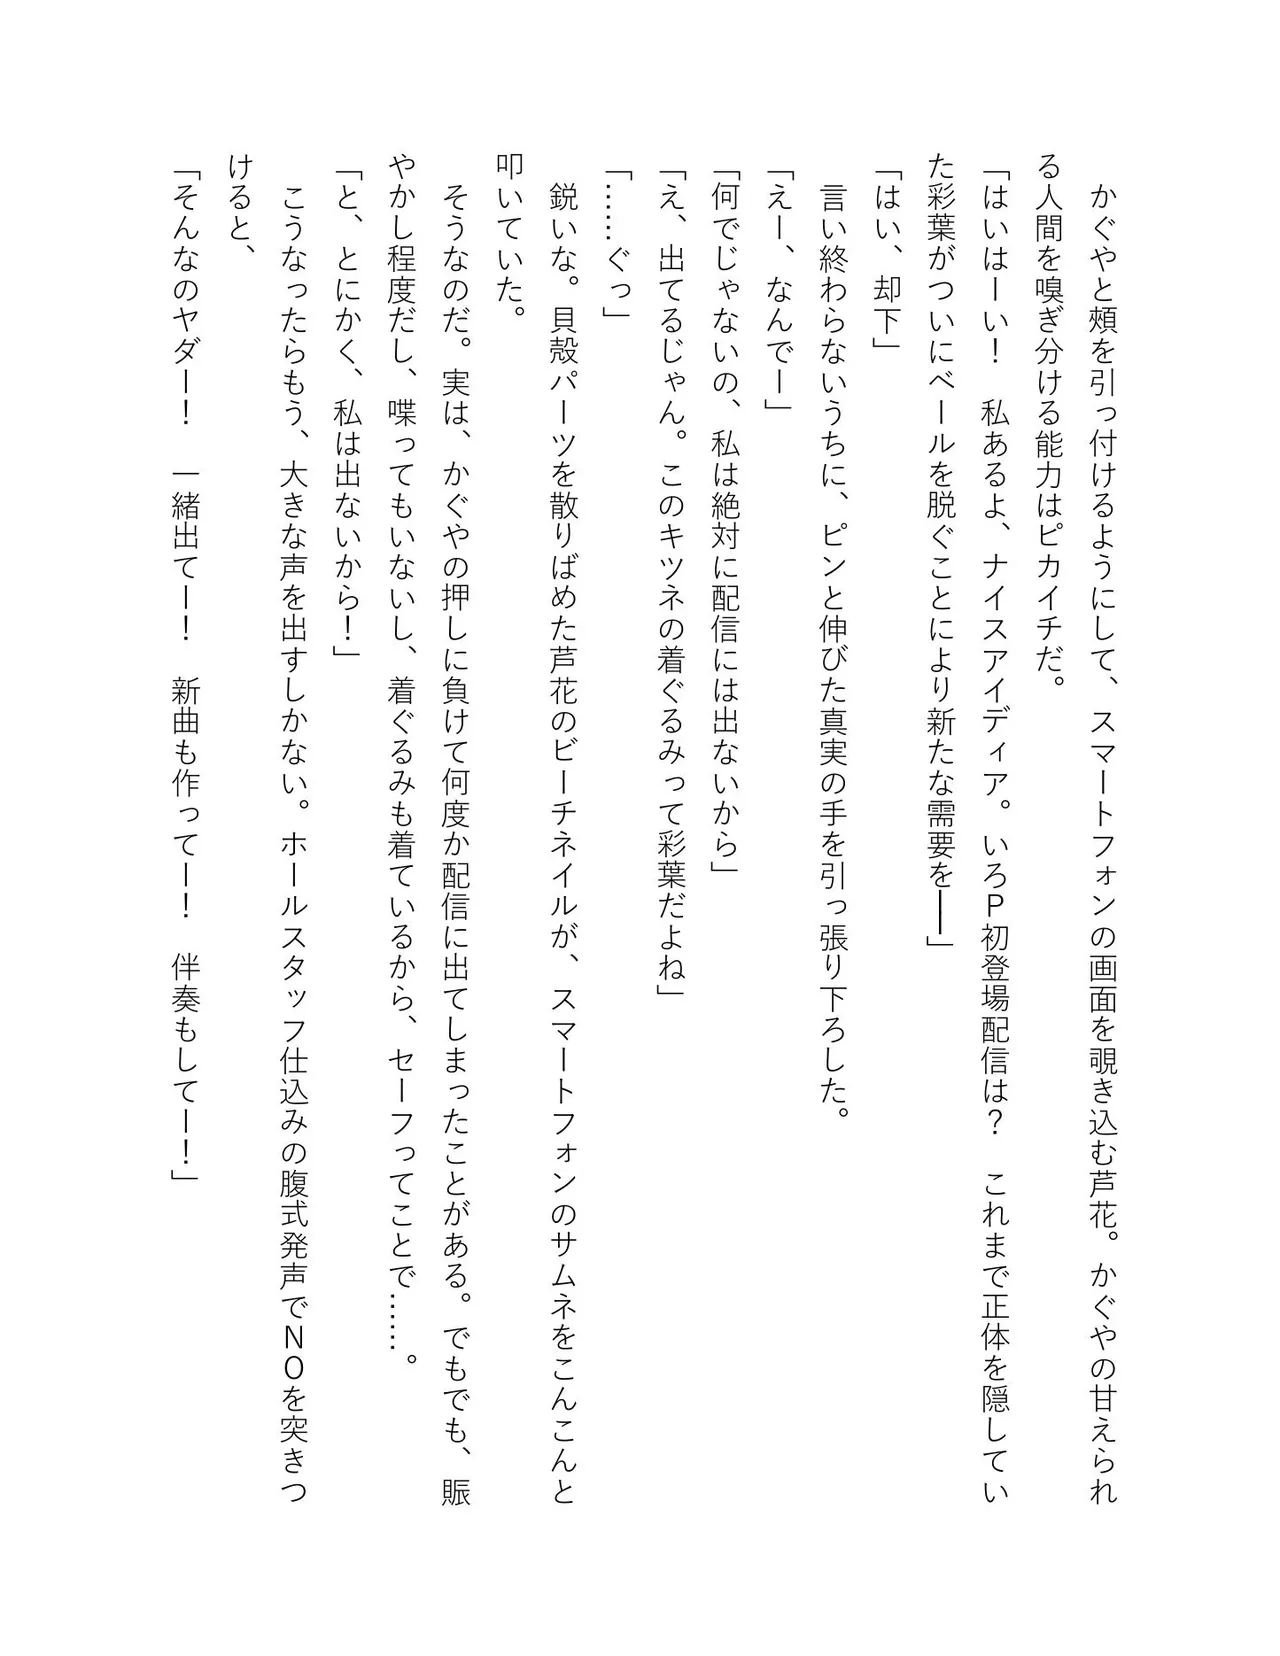 かぐやと頰を引っ付けるようにして、スマートフォンの画面を覗き込む芦花。かぐやの甘えられ
る人間を嗅ぎ分ける能力はピカイチだ。
「はいはーい！　私あるよ、ナイスアイディア。いろＰ初登場配信は？　これまで正体を隠してい
た彩葉がついにベールを脱ぐことにより新たな需要を――」
「はい、却下」
言い終わらないうちに、ピンと伸びた真実の手を引っ張り下ろした。
「えー、なんでー」
「何でじゃないの、私は絶対に配信には出ないから」
「え、出てるじゃん。このキツネの着ぐるみって彩葉だよね」
「……ぐっ」
鋭いな。貝殻パーツを散りばめた芦花のビーチネイルが、スマートフォンのサムネをこんこんと
叩いていた。
そうなのだ。実は、かぐやの押しに負けて何度か配信に出てしまったことがある。でもでも、賑
やかし程度だし、喋ってもいないし、着ぐるみも着ているから、セーフってことで……。
「と、とにかく、私は出ないから！」
こうなったらもう、大きな声を出すしかない。ホールスタッフ仕込みの腹式発声でＮＯを突きつ
けると、
「そんなのヤダー！　一緒出てー！　新曲も作ってー！　伴奏もしてー！」